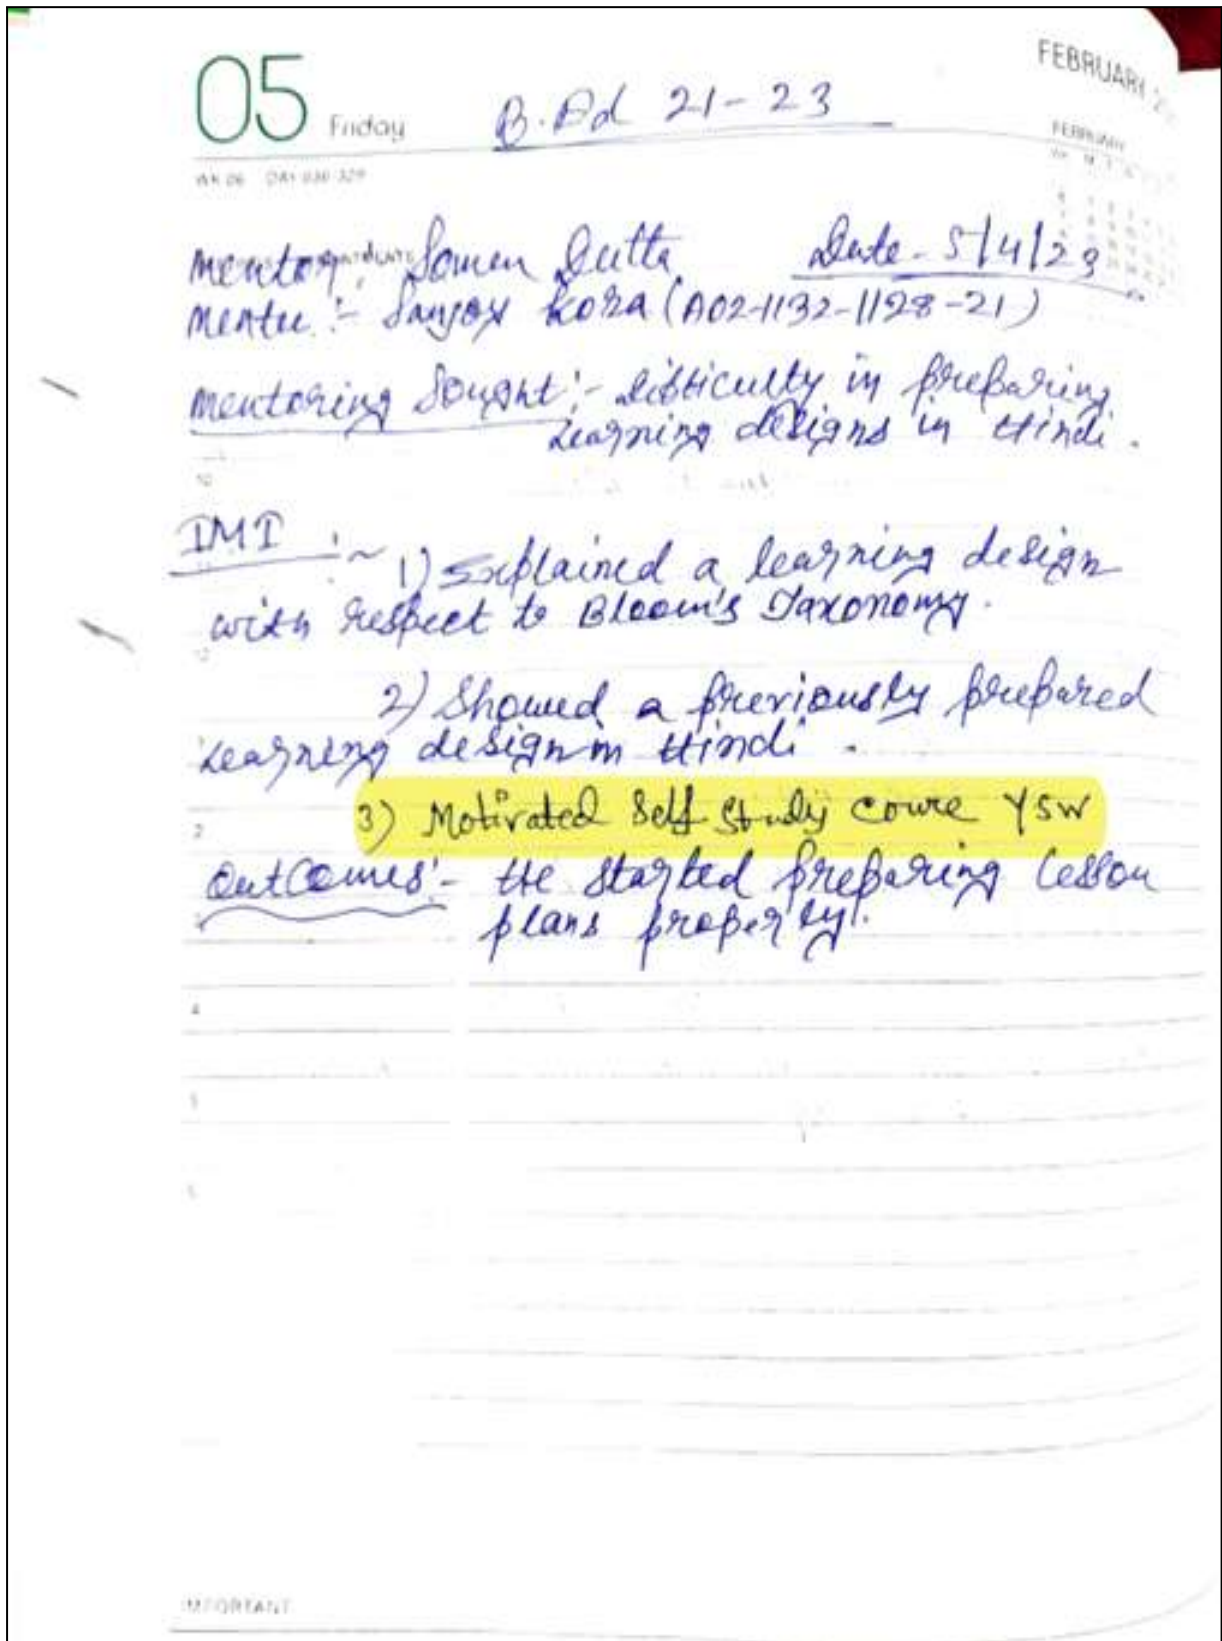 FEBRUARY
05 Friday B.Ed 21-23
FEBRUARY
WK 06
Mentor: Somen Dutta Date - 5/4/23
Mentee :- Sanjoy Kora (A02-1132-1128-21)
Mentoring Sought :- Difficulty in preparing
Learning designs in Hindi.
IMI :~ 1) Explained a learning design
with respect to Bloom's Taxonomy.
2) Showed a previously prepared
Learning design in Hindi.
3) Motivated Self Study Course YSW
2
Outcomes :- He started preparing lesson
plans properly.
4
5
IMPORTANT